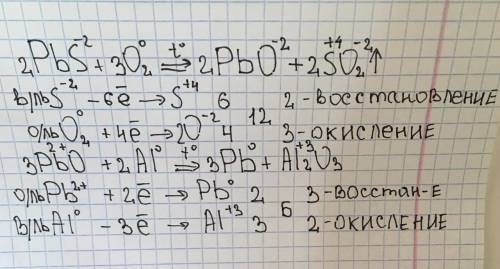 2PbS⁻² + 3O₂⁰ t°⇒ 2PbO⁻² + 2S⁺⁴O₂⁻²↑
в/ль S⁻² – 6ē → S⁺⁴ 6 2 - восстановление
о/ль O₂⁰ + 4ē → 2O⁻² 4 12 3 - окисление
3Pb²⁺O + 2Al⁰ t°⇒ 3Pb⁰ + Al₂⁺³O₃
о/ль Pb²⁺ + 2ē → Pb⁰ 2 3 - восстан-е
в/ль Al⁰ – 3ē → Al⁺³ 3 6 2 - окисление